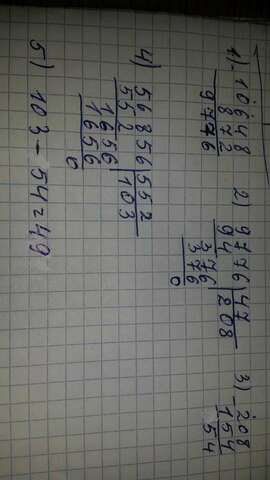 1) -10648
872
9776
2) 9776|47
94 |208
376
376
0
3) -208
154
54
4) 56856|552
552 |103
1656
1656
0
5) 103-54=49